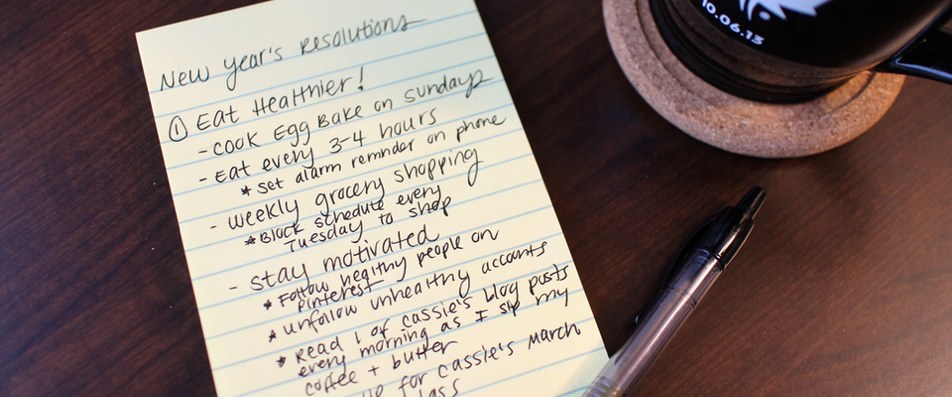 New Year's Resolutions
① Eat Healthier!
- Cook Egg Bake on Sundays
- Eat every 3-4 hours
* Set alarm reminder on phone
- Weekly grocery shopping
* Block schedule every
Tuesday to shop
- Stay motivated
* Follow healthy people on
pinterest
* unfollow unhealthy accounts
* Read 1 of Cassie's blog posts
every morning as I sip my
coffee + butter
for Cassie's March
10.06.13